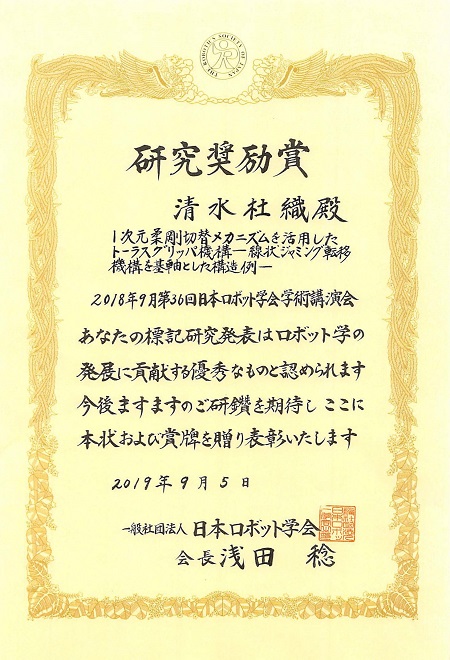 THE ROBOTICS SOCIETY OF JAPAN
研究奨励賞
清水杜織殿
1次元柔剛切替メカニズムを活用した
トーラスグリッパ機構－線状ジャミング転移
機構を基軸とした構造例－
2018年9月第36回日本ロボット学会学術講演会
あなたの標記研究発表はロボット学の
発展に貢献する優秀なものと認められます
今後ますますのご研鑽を期待し ここに
本状および賞牌を贈り表彰いたします
2019年9月5日
一般社団法人 日本ロボット学会
会長 浅田 稔